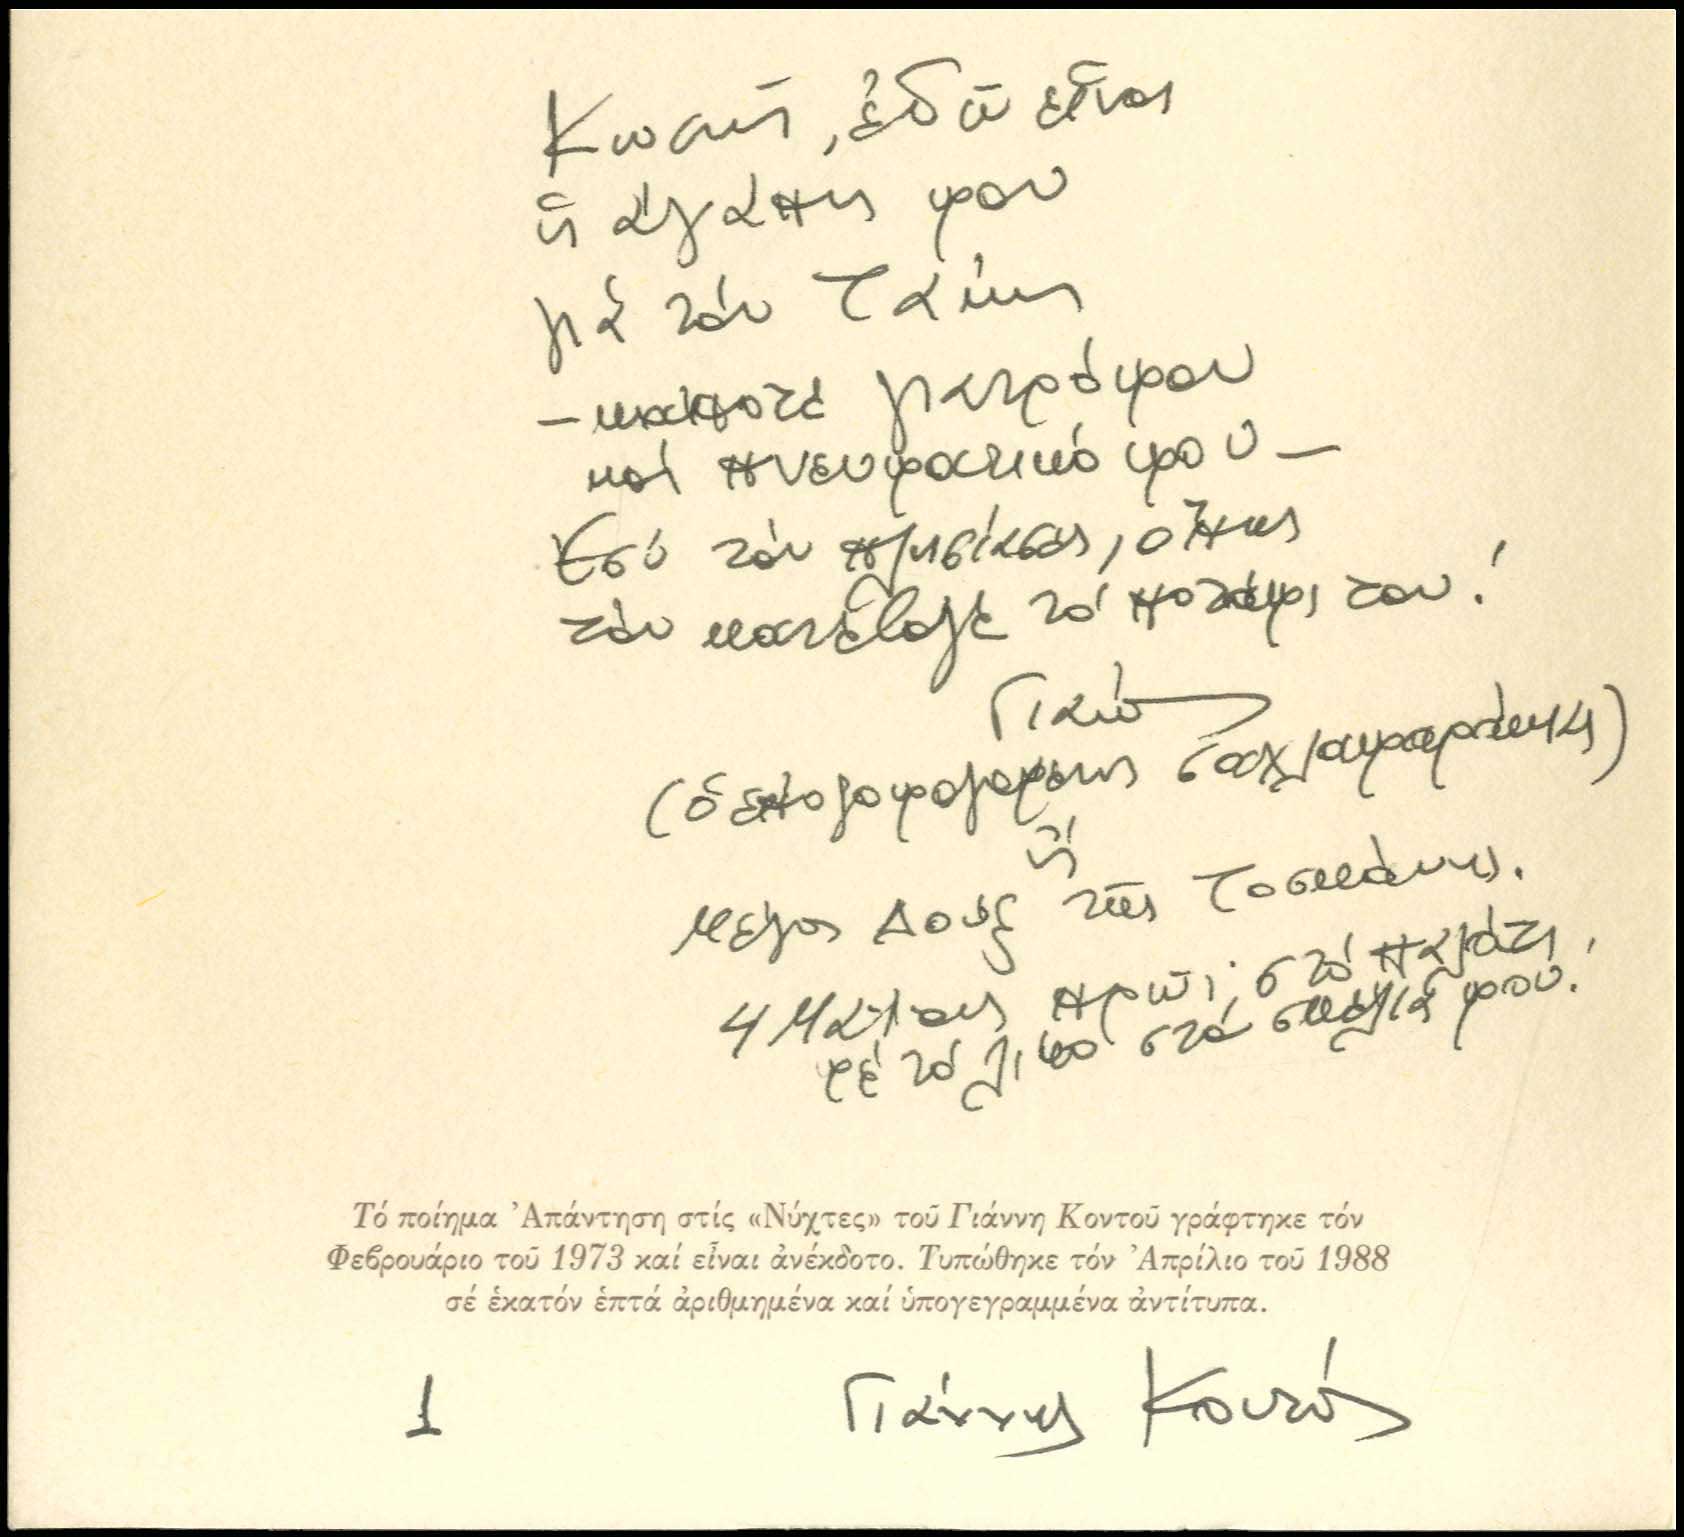 Κωστῆ, ἐδῶ εἶναι
ἡ ἀγάπη μου
γιά τόν Τάκη
– κάποτε γιατρό μου
καί πνευματικό μου –
Ἐσύ τόν πλησίασες, ὅπως
τόν κατέβαλε τό ποτάμι του!
(ὁ
ἤ
Μέγας Δούξ τῆς Τοσκάνης.
4 Μάϊος πρωΐ, στό παλάτι,
μέ τό στά σκαλιά μου!
Τό ποίημα Ἀπάντηση στίς «Νύχτες» τοῦ Γιάννη Κοντοῦ γράφτηκε τόν
Φεβρουάριο τοῦ 1973 καί εἶναι ἀνέκδοτο. Τυπώθηκε τόν Ἀπρίλιο τοῦ 1988
σέ ἑκατόν ἑπτά ἀριθμημένα καί ὑπογεγραμμένα ἀντίτυπα.
1 Γιάννης Κοντός